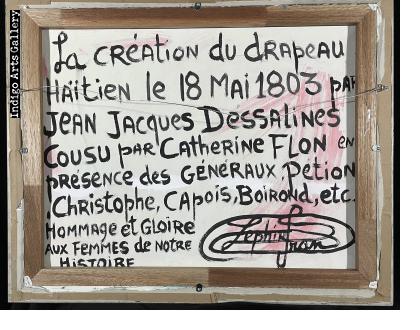 La création du drapeau
Haïtien le 18 Mai 1803 par
Jean Jacques Dessalines
Cousu par Catherine Flon en
présence des Généraux, Pétion
, Christophe, Capois, Boirond, etc.
Hommage et Gloire
aux femmes de notre
Histoire
Indigo Arts Gallery